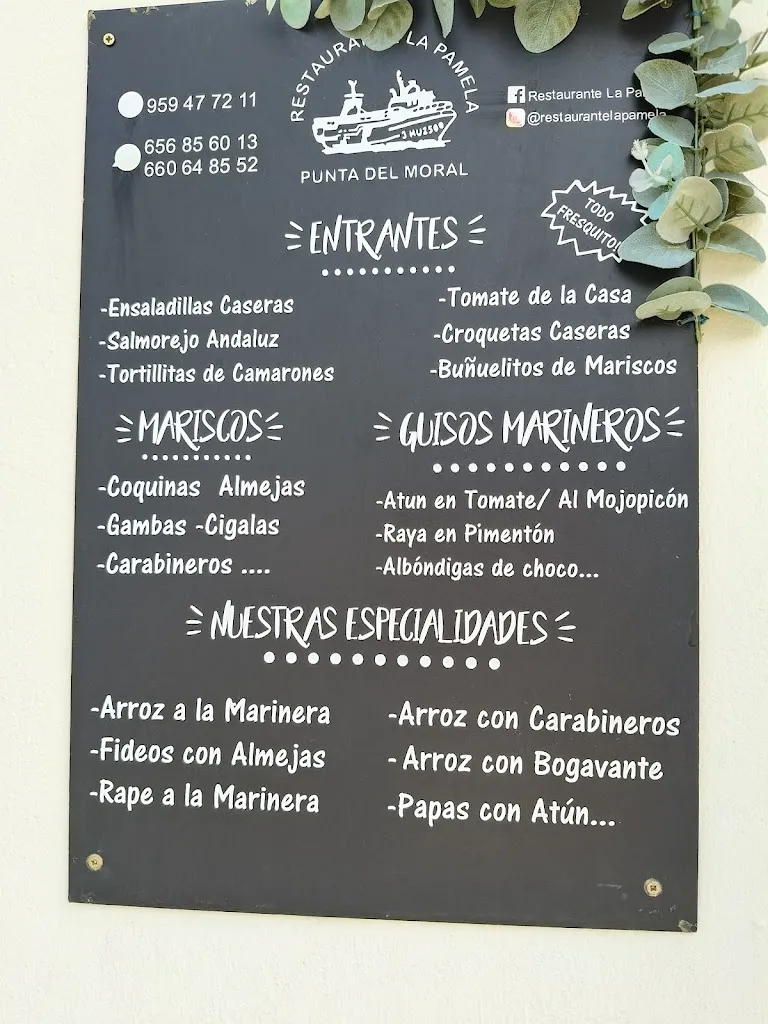 RESTAURANTE LA PAMELA
3 HU2500
PUNTA DEL MORAL
959 47 72 11
656 85 60 13
660 64 85 52
Restaurante La
@restaurantelapamela
TODO
FRESQUITO!
ENTRANTES
-Ensaladillas Caseras
-Salmorejo Andaluz
-Tortillitas de Camarones
-Tomate de la Casa
-Croquetas Caseras
-Buñuelitos de Mariscos
MARISCOS
-Coquinas Almejas
-Gambas -Cigalas
-Carabineros ....
GUISOS MARINEROS
-Atun en Tomate/ Al Mojopicón
-Raya en Pimentón
-Albóndigas de choco...
NUESTRAS ESPECIALIDADES
-Arroz a la Marinera
-Fideos con Almejas
-Rape a la Marinera
-Arroz con Carabineros
-Arroz con Bogavante
-Papas con Atún...